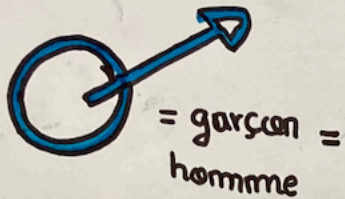 = garçon =
homme